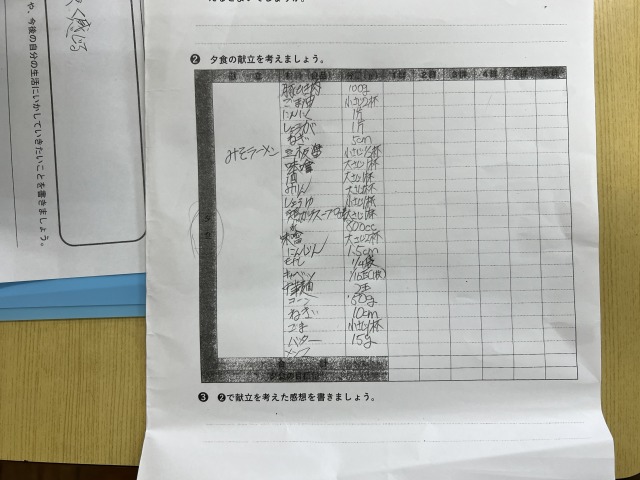 く感じる
や、今後の自分の生活にいかしていきたいことを書きましょう。
❷ 夕食の献立を考えましょう。
献立 材料(食品) 分量(g) 1群 2群 3群 4群 5群 6群
豚ひき肉 100g
ごま油 小さじ2杯
にんにく 1片
しょうが 1片
ねぎ 5cm
みそラーメン 豆板醤
味噌 大さじ1杯
酒 大さじ1杯
みりん 大さじ1杯
しょうゆ 小さじ1杯
鶏ガラスープの素 大さじ1杯
水 800cc
味噌 大さじ2杯
にんじん 1.5cm
もやし 1/4袋
キャベツ
中華麺 2玉
コーン 50g
ねぎ 10cm
ごま 小さじ1杯
バター 15g
メンマ
合計
❸ ❷で献立を考えた感想を書きましょう。